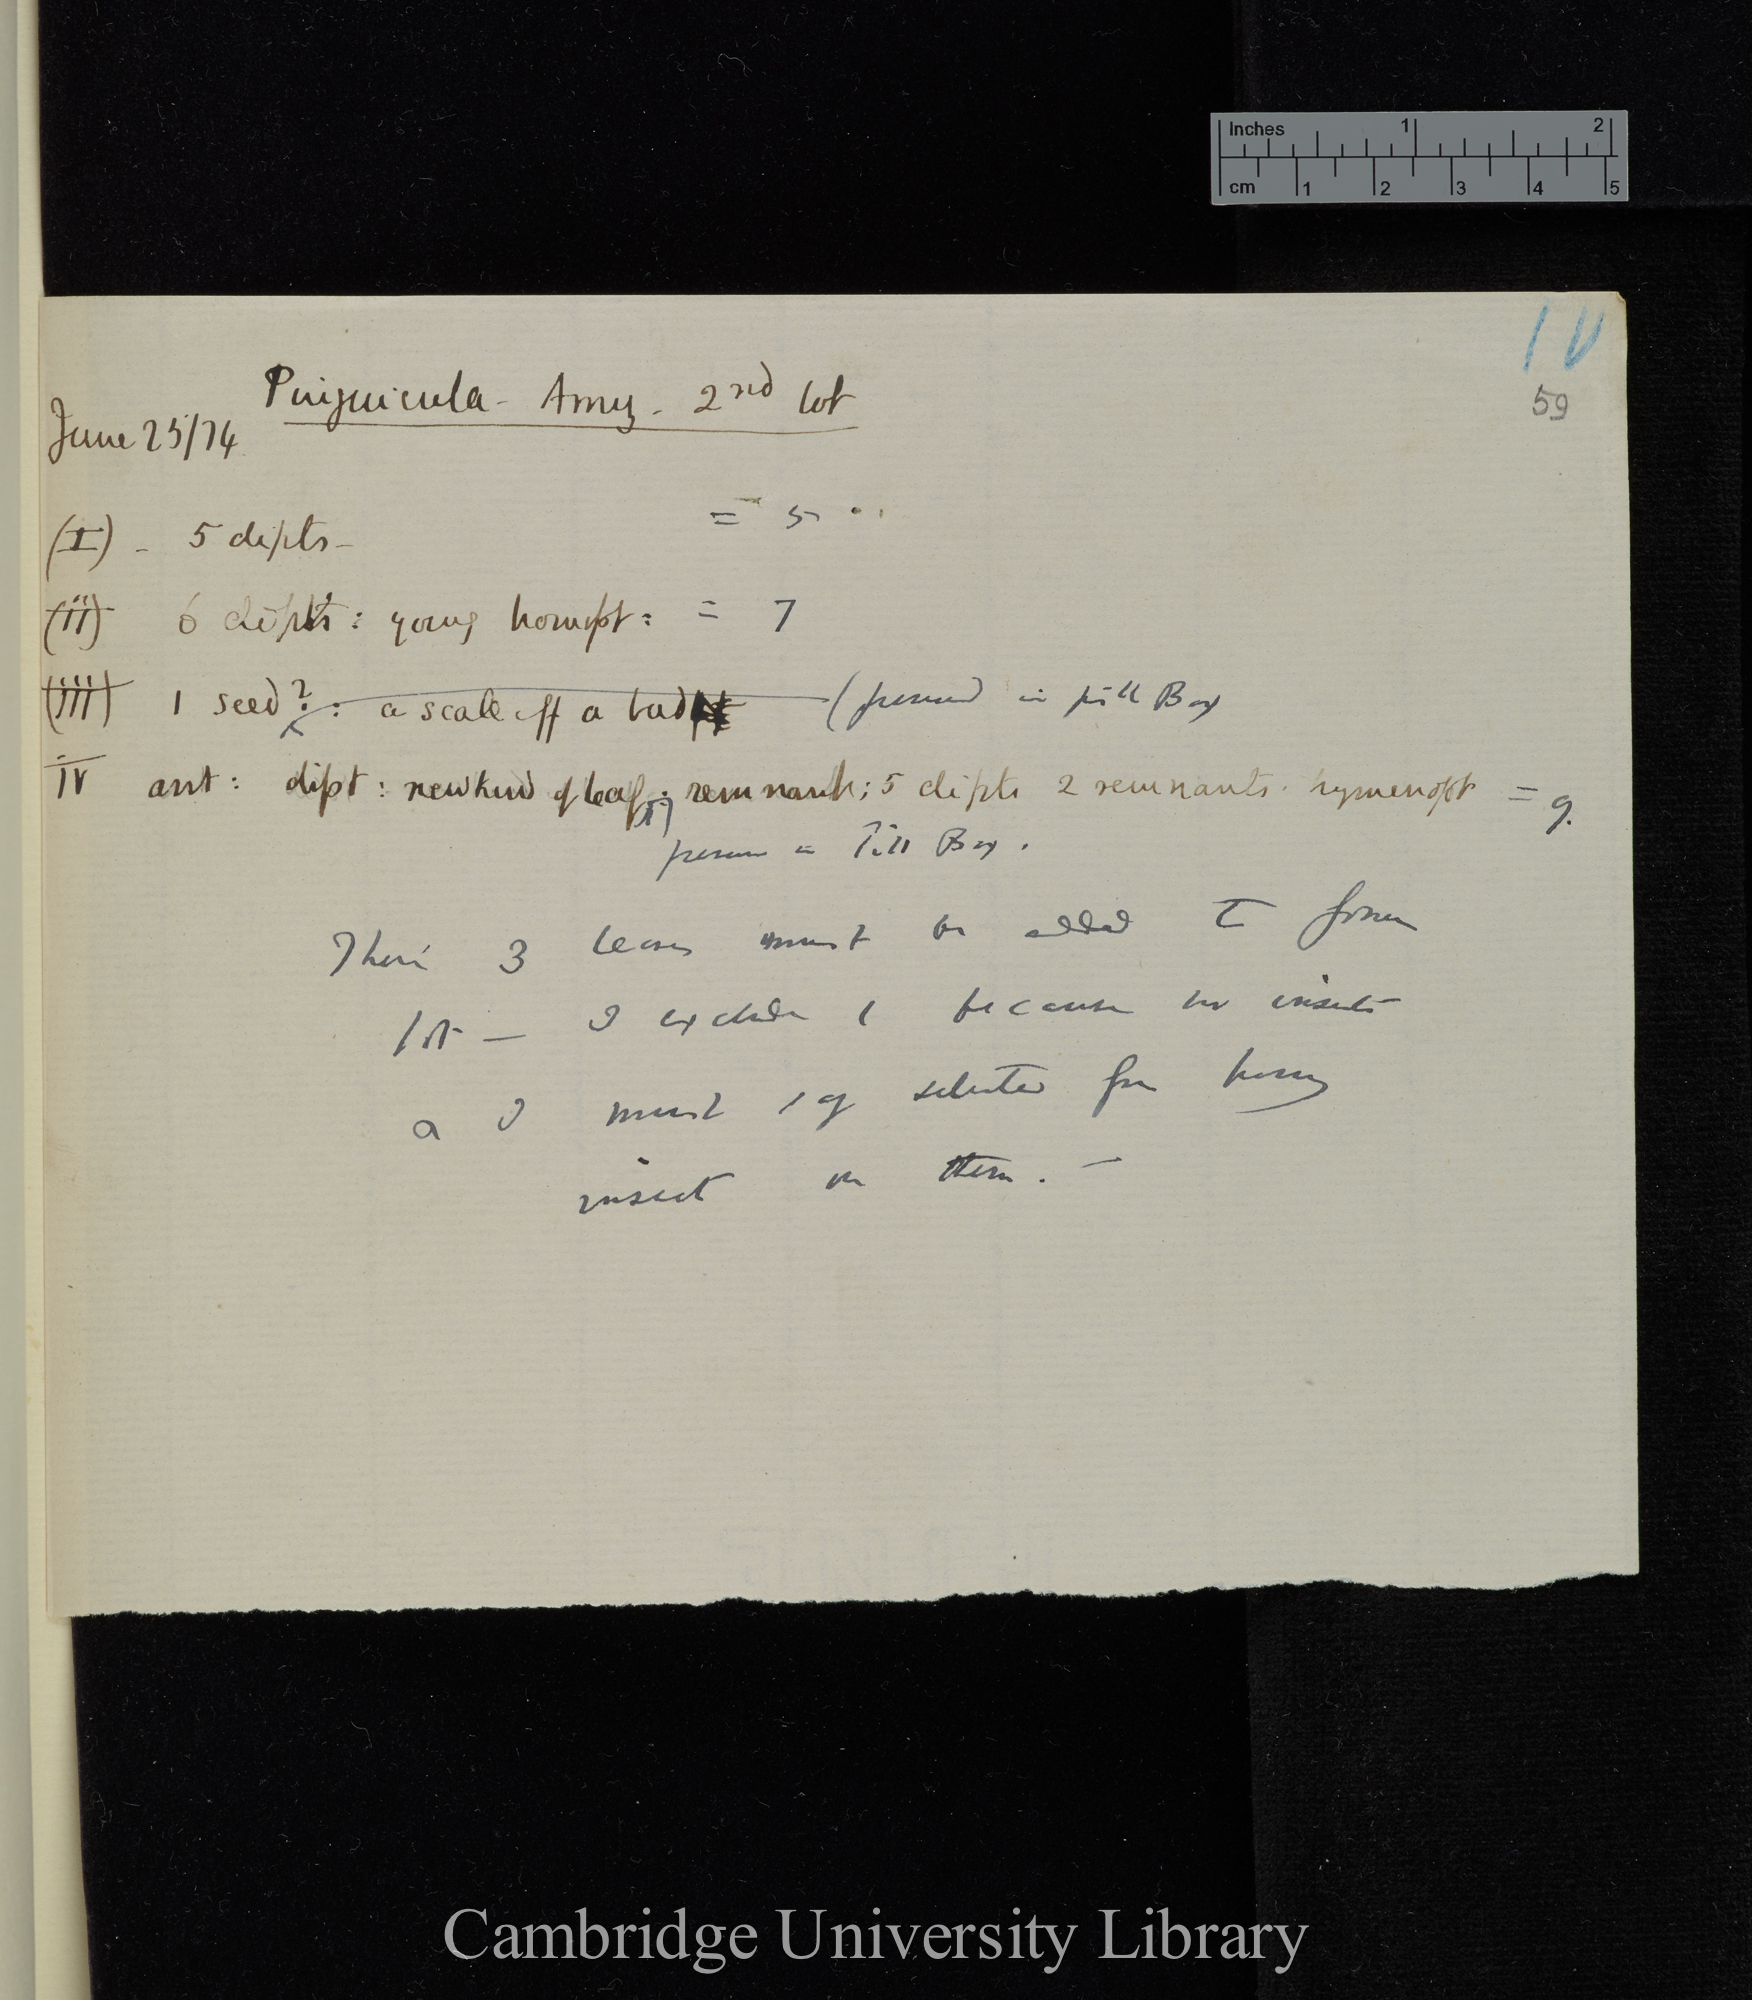 Inches 1 2
cm 1 2 3 4 5
10
59
Pinguicula - Amy - 2nd lot
June 25/74
(I) - 5 dipts - = 5
(ii) 6 dipts: young homopt: = 7
(iii) 1 seed?: a scale off a bud (preserved in pill Box
IV ant: dipt: new kind of leaf: remnants; 5 dipts 2 remnants. hymenopt = 9.
preserved in Pill Box.
These 3 leaves must be added to former
lot — I exclude 1 because no insects
a I must selected for having
insect on them. —
Cambridge University Library